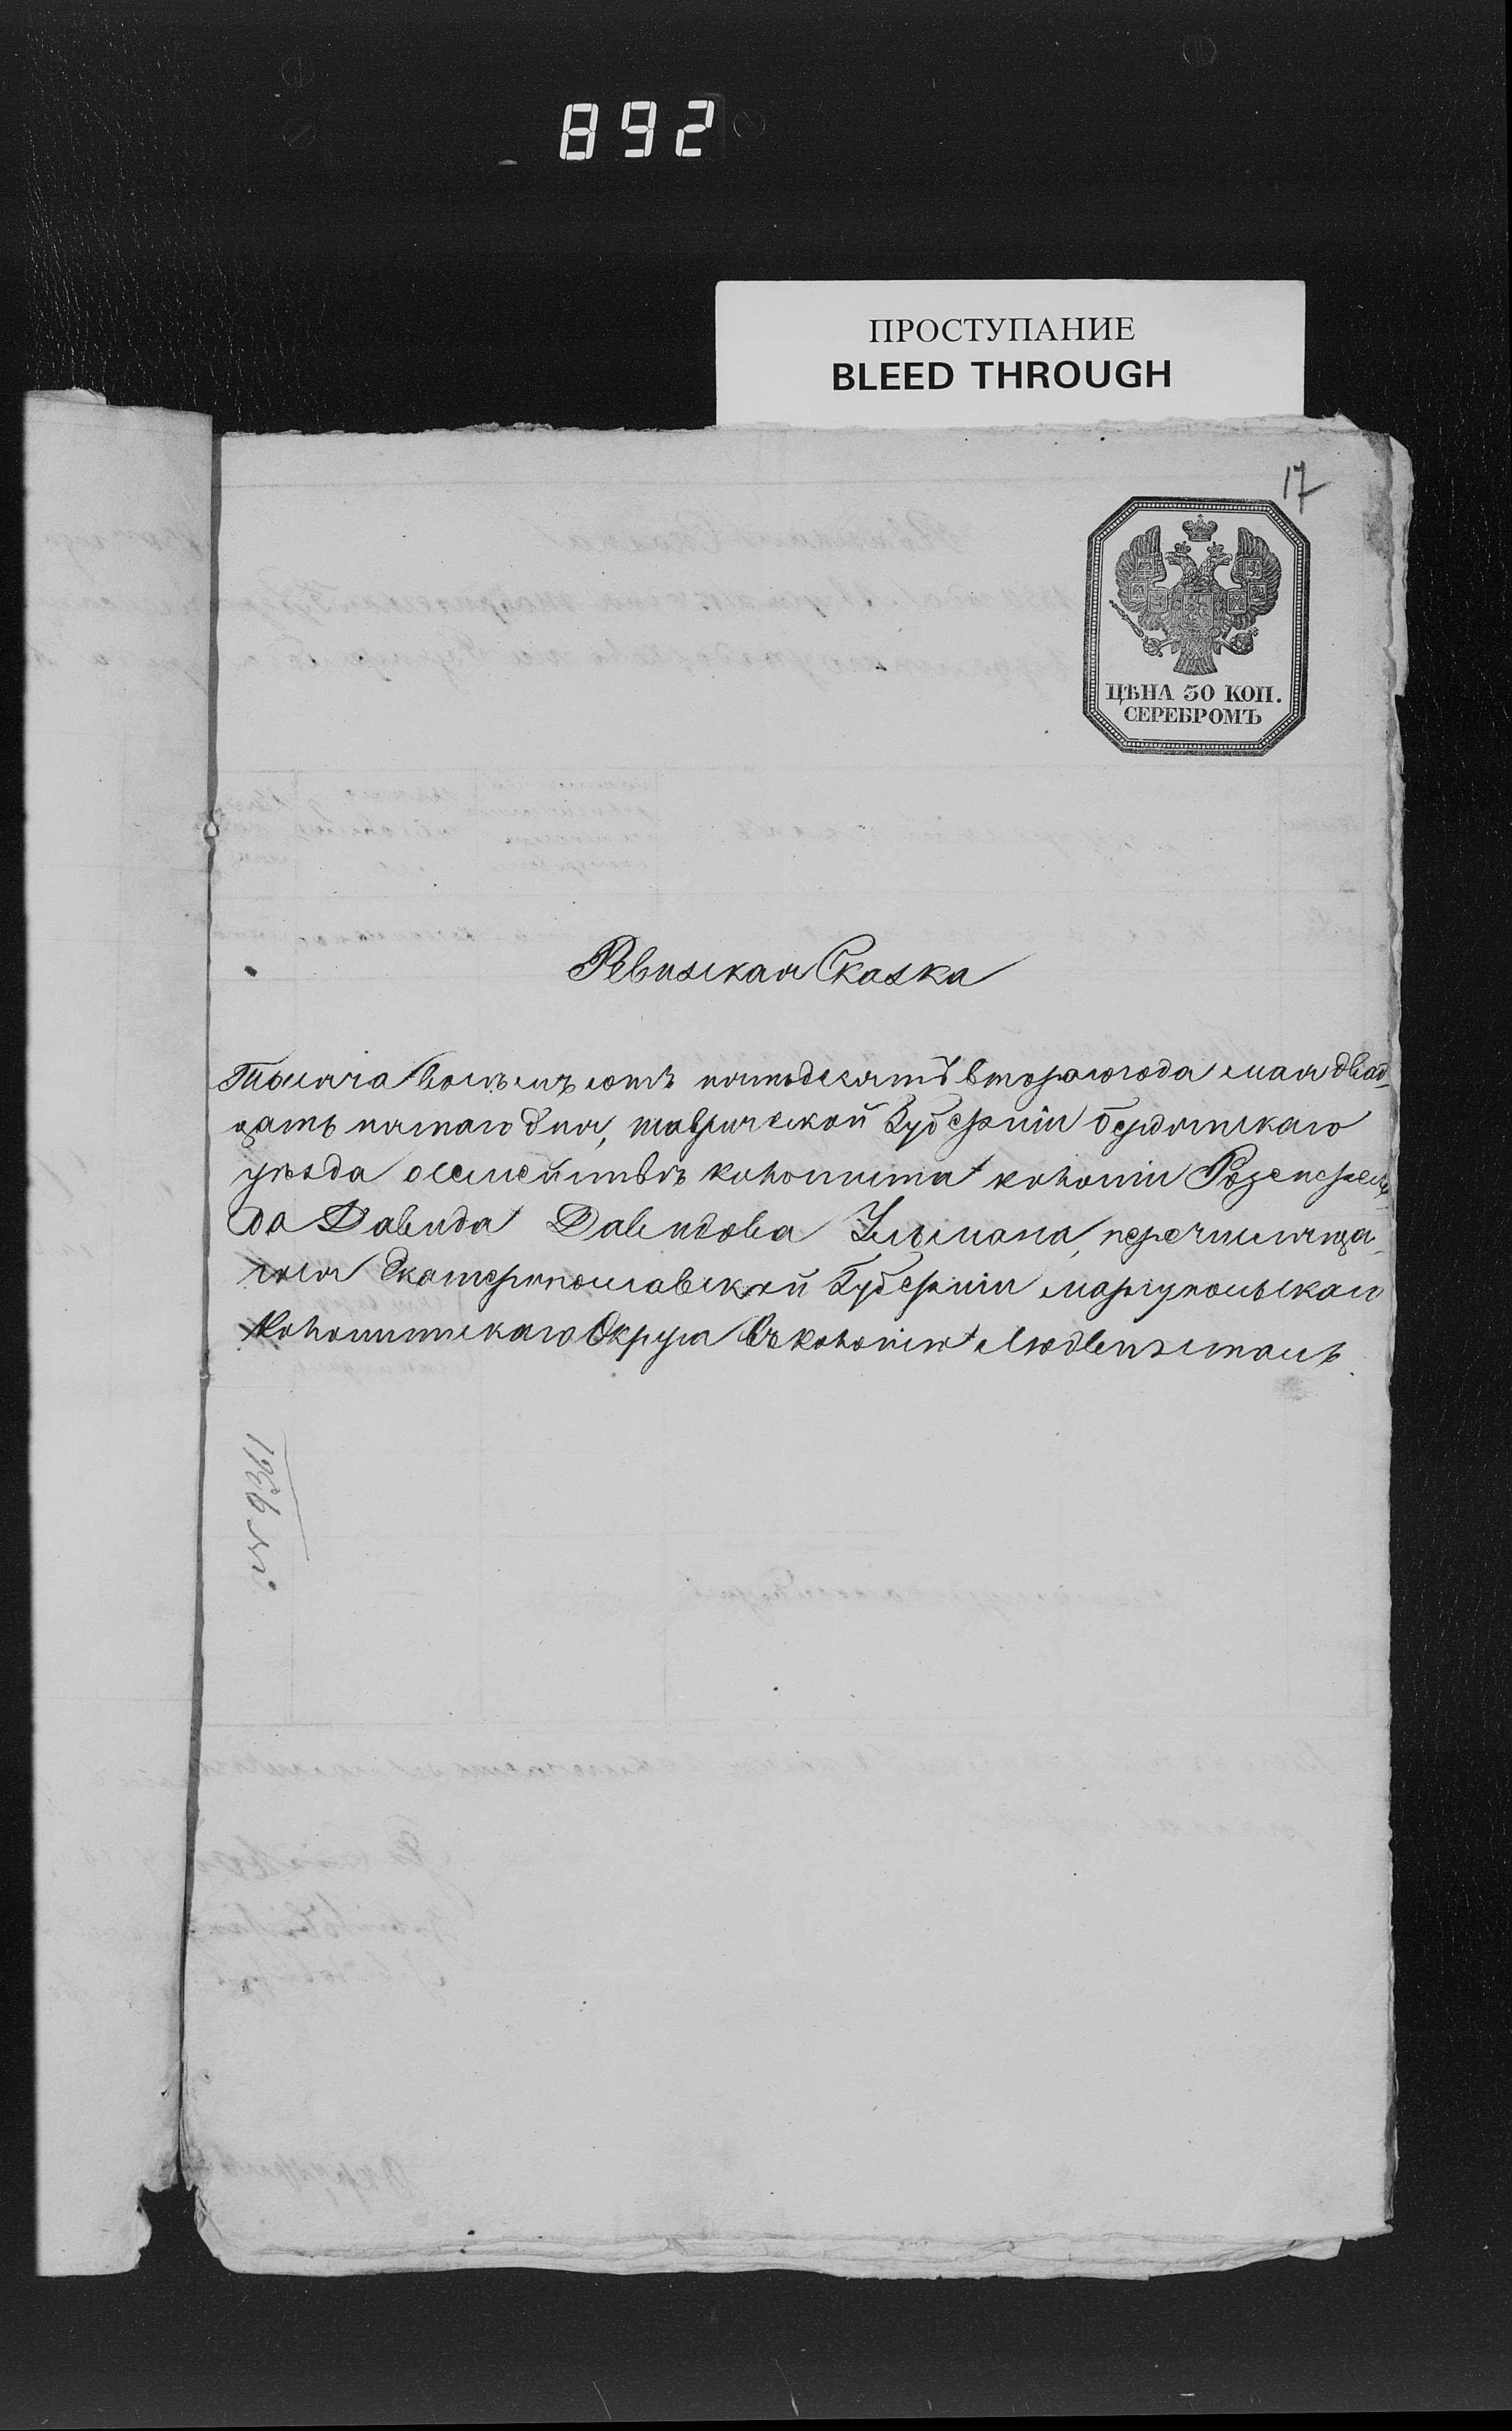 892
ПРОСТУПАНИЕ
BLEED THROUGH
17
ЦѢНА 30 КОП.
СЕРЕБРОМЪ
Ревизская Сказка
Тысяча восемь сотъ пятьдесятъ втораго года мая двад-
цать пятаго дня, таврической Губерніи бердянскаго
уѣзда о семействѣ колониста колоніи Розенфель-
да Давида Давидова Ульмана, перечисляюща-
гося Екатеринославской Губерніи маріупольскаго
Колонистскаго Округа въ колонію Людвигсталь